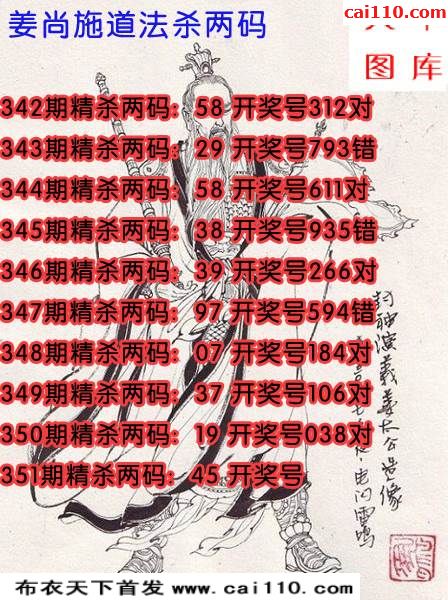 姜尚施道法杀两码
cai110.com
图库
342期精杀两码：58 开奖号312对
343期精杀两码：29 开奖号793错
344期精杀两码：58 开奖号611对
345期精杀两码：38 开奖号935错
346期精杀两码：39 开奖号266对
347期精杀两码：97 开奖号594错
348期精杀两码：07 开奖号184对
349期精杀两码：37 开奖号106对
350期精杀两码：19 开奖号038对
351期精杀两码：45 开奖号
封神演義姜太公造像
布衣天下首发 www.cai110.com